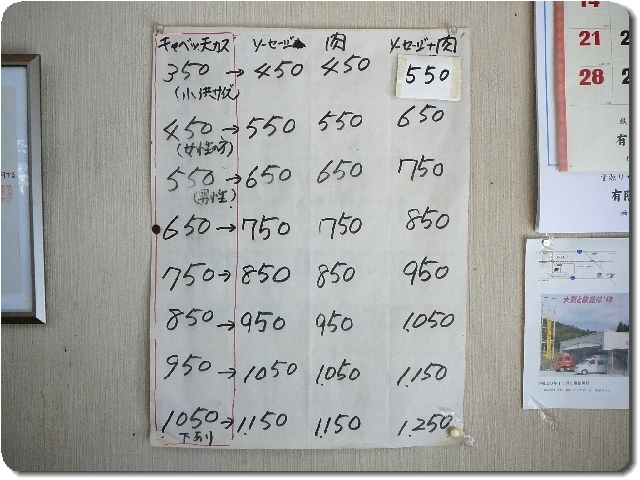 キャベツ天カス ソーセージ 肉 ソーセージ+肉
350→450 450 550
(小供サイズ)
450→550 550 650
(女性の方)
550→650 650 750
(男性)
650→750 750 850
750→850 850 950
850→950 950 1.050
950→1050 1.050 1.150
1050→1.150 1.150 1.250
下あり
14
21
28